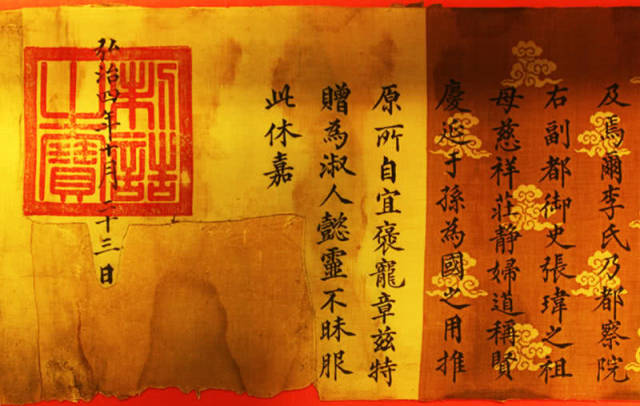 及焉爾李氏乃都察院
右副都御史張瑋之祖
母慈祥莊静婦道稱賢
慶延于孫為國之用推
原所自宜褒寵章兹特
贈為淑人懿靈不昧服
此休嘉
弘治四年十月二十三日
制誥之寶